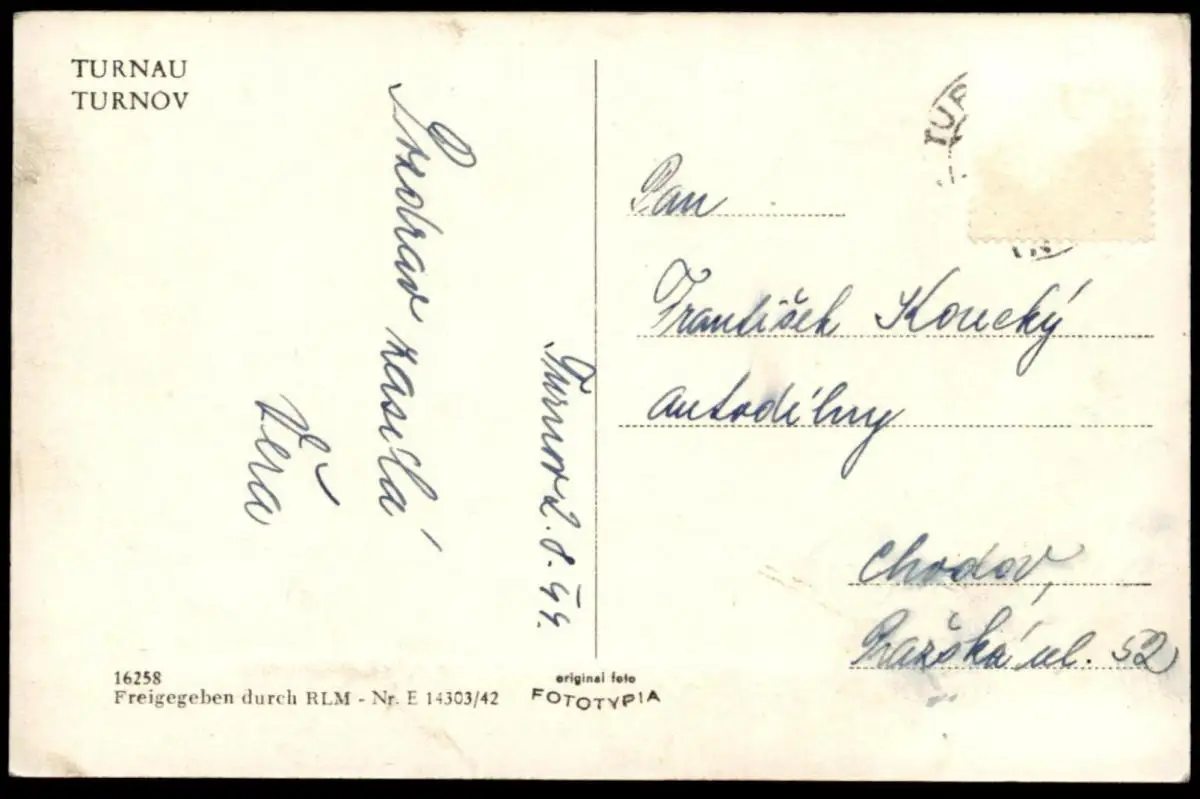 TURNAU
TURNOV
Pozdrav zasílá
Věra
Turnov 2. 8. 44.
TUR
Pan
František Koucký
autodílny
Chodov,
Pražská ul. 52
16258
Freigegeben durch RLM - Nr. E 14303/42
original foto
FOTOTYPIA